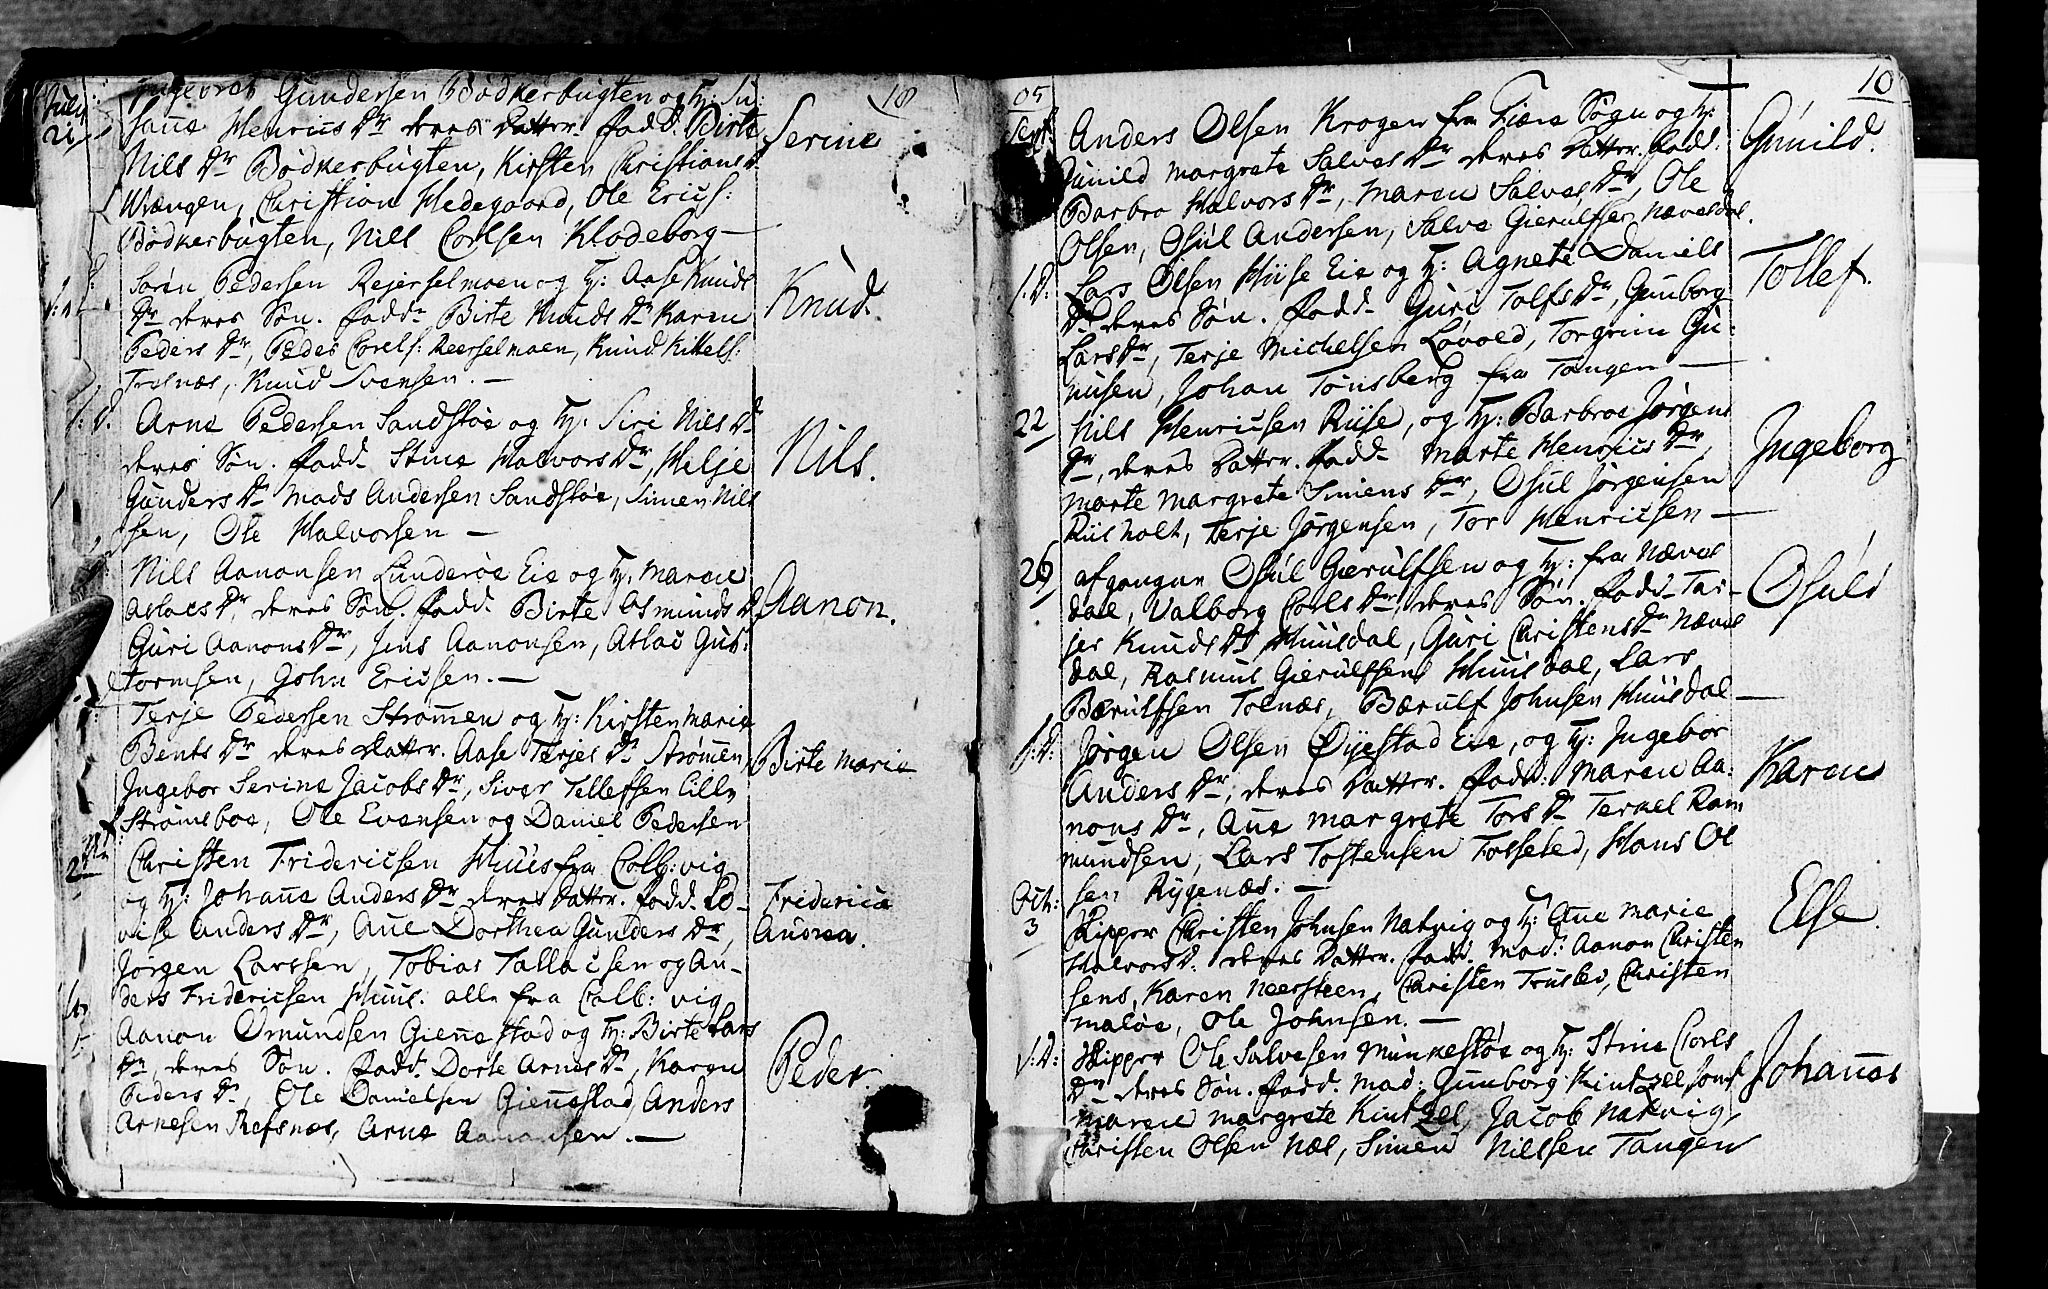 18
July
21
Ingebret Gundersen Bødkerbugten og Hj: Su:
sanne Henrics Dr deres Datter. fadd. Birte
Nils Dr Bødkerbugten, Kirsten Christians D.
Wrængen, Christian Hedegaard, Ole Erics:
Bødkerbugten, Nils Carlsen Klodeborg —
Serine
Søren Pedersen Rejerselmoen og Hj: Aase Knuds
Dr deres Søn. fadd. Birte Knuds Dr Karen
Peders Dr, Peder Carels: Reerselmoen, Knud Kittels:
Trosnæs, Knud Svensen. —
Knud.
S: D.
Arne Pedersen Sandstøe og Hj: Siri Nils Dr
deres Søn. fadd. Stine Halvors Dr, Helje
Gunders Dr Mads Andersen Sandstøe, Simen Nils
sen, Ole Halvorsen —
Nils.
Nils Aanonsen Lunderøe Eie og Hj. Maren
Aslacs Dr, deres Søn. fadd. Birte Osmunds D.
Guri Aanons Dr, Jens Aanonsen, Aslac Gut:
tormsen, John Ericsen. —
Aanon.
Terje Pedersen Strømen og Hj: Kirsten Marie
Bents Dr deres Datter. Aase Terjes Dr Strømen,
Ingebor Serine Jacobs Dr, Siver Tellefsen Lille
Strømsboe, Ole Evensen og Daniel Pedersen
Birte Marie
2
Christen Fridericsen Huus fra Colb: vig
og Hj: Johanne Anders Dr deres Datter. fadd. Lo-
vise Anders Dr, Ane Dorthea Gunders Dr,
Jørgen Larssen, Tobias Tallacsen og An-
ders Fridericsen Huus. alle fra Colb: vig
Friderica
Andrea.
Aanon Omundsen Gjennestad og Hj: Birte Lars
Dr, deres Søn. fadd. Dorte Arnes Dr, Karen
Peders Dr, Ole Danielsen Gjennestad, Anders
Arnesen Refsnæs, Arne Aanonsen. —
Peder
05
10
Sept.
Anders Olsen Krogen fra Fiære Sogn og Hj:
Gunild Margrete Salves Dr deres Datter. fadd.
Barbro Halvors Dr, Maren Salves Dr, Ole
Olsen, Osul Andersen, Salve Gierulfsen Næveldal.
Gunild.
S: D:
Lars Olsen Huse Eie og Hj: Agnete Daniels
Dr deres Søn. fadd. Guri Tolfs Dr, Gunborg
Lars Dr, Terje Michelsen Løvold, Torgrim Gu:
musen, Johan Tønsberg fra Tangen —
Tollef.
22
Nils Henricsen Riise, og Hj: Barbroe Jørgens
Dr, deres Datter. fadd. Marte Henrics Dr,
Marte Margrete Simens Dr, Osul Jørgensen
Riisholt, Terje Jørgensen, Tor Henricsen —
Ingeborg
29
afgangne Osul Gierulfsen og Hj: fra Nævel
dal, Valborg Carls Dr, deres Søn. fadd. Tar-
jer Knuds Dr Huusdal, Guri Christens Dr Nævel
dal, Rasmus Gierulfsen Huusdal, Lars
Bærulfsen Tolnæs, Bærulf Johnsen Huusdal —
Osuld
S: D:
Jørgen Olsen Øyestad Eie, og Hj: Ingebor
Anders Dr, deres Datter. fadd: Maren Aa:
nons Dr, Ane Margrete Tors Dr Terkel Rom
mundsen, Lars Tostensen Fosseled, Hans Ol
sen Rygenæs. —
Karen
Octr:
3
Skipper Christen Johnsen Natvig og Hj: Ane Marie
Halvors D. deres Datter. fadd. Mad: Aanon Christen
sens, Karen Neersteen, Christen Trusled, Christen
Maløe, Ole Johnsen. —
Else
S: D:
Skipper Ole Salvesen Munkestøe og Hj: Stine Carls
Dr deres Søn. fadd. Mad: Gunborg Kintzel Jomf
Maren Margrete Kintzel, Jacob Natvig,
Christen Olsen Næs, Simen Nielsen Tangen
Johannes